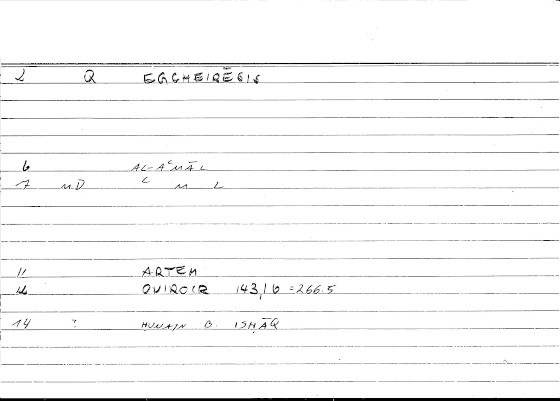 2 Q EGCHEIRĒSIS
6 AL-AʿMĀL
7 MD ʿ M L
11 ARTEM
12 OVIROCR 143,16 = 266.5
14 ? HUNAIN B. ISHĀQ